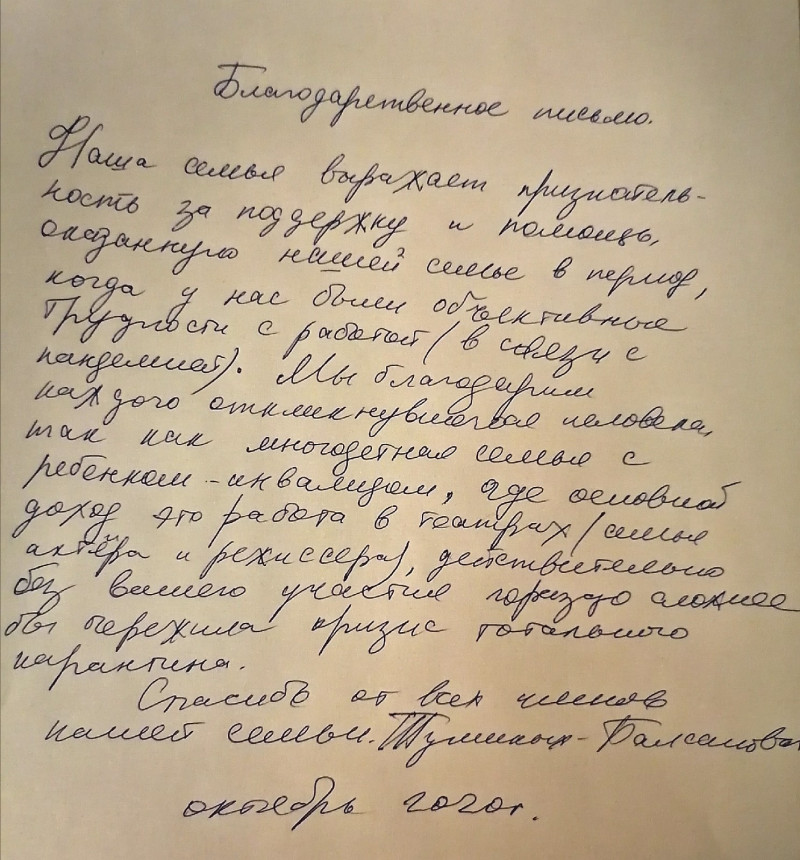 Благодарственное письмо.
Наша семья выражает признатель-
ность за поддержку и помощь,
оказанную нашей семье в период,
когда у нас были объективные
трудности с работой (в связи с
пандемией). Мы благодарим
каждого откликнувшегося человека,
так как многодетная семья с
ребенком-инвалидом, где основной
доход это работа в театрах (семья
актёра и режиссера), действительно
без вашего участия гораздо сложнее
бы пережила кризис тотального
карантина.
Спасибо от всех членов
нашей семьи.
октябрь 2020г.